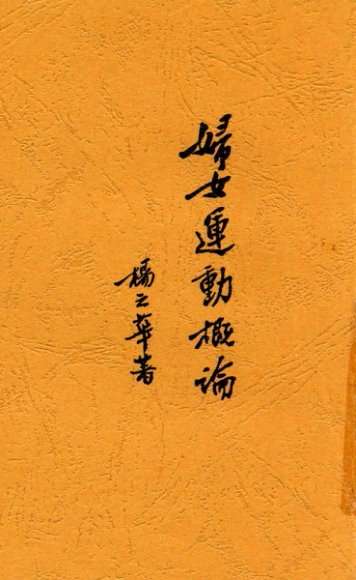 婦女運動概論
楊之華著